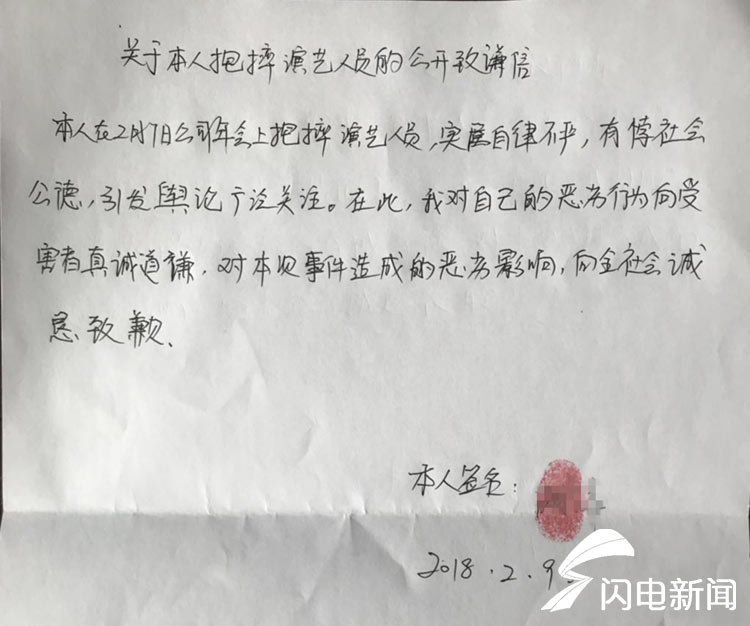 关于本人抱摔演艺人员的公开致谦信
本人在2月7日公司年会上抱摔演艺人员，实属自律不严，有悖社会
公德，引发舆论广泛关注。在此，我对自己的恶劣行为向受
害者真诚道谦，对本次事件造成的恶劣影响，向全社会诚
恳致歉。
本人签名：
2018.2.9
闪电新闻